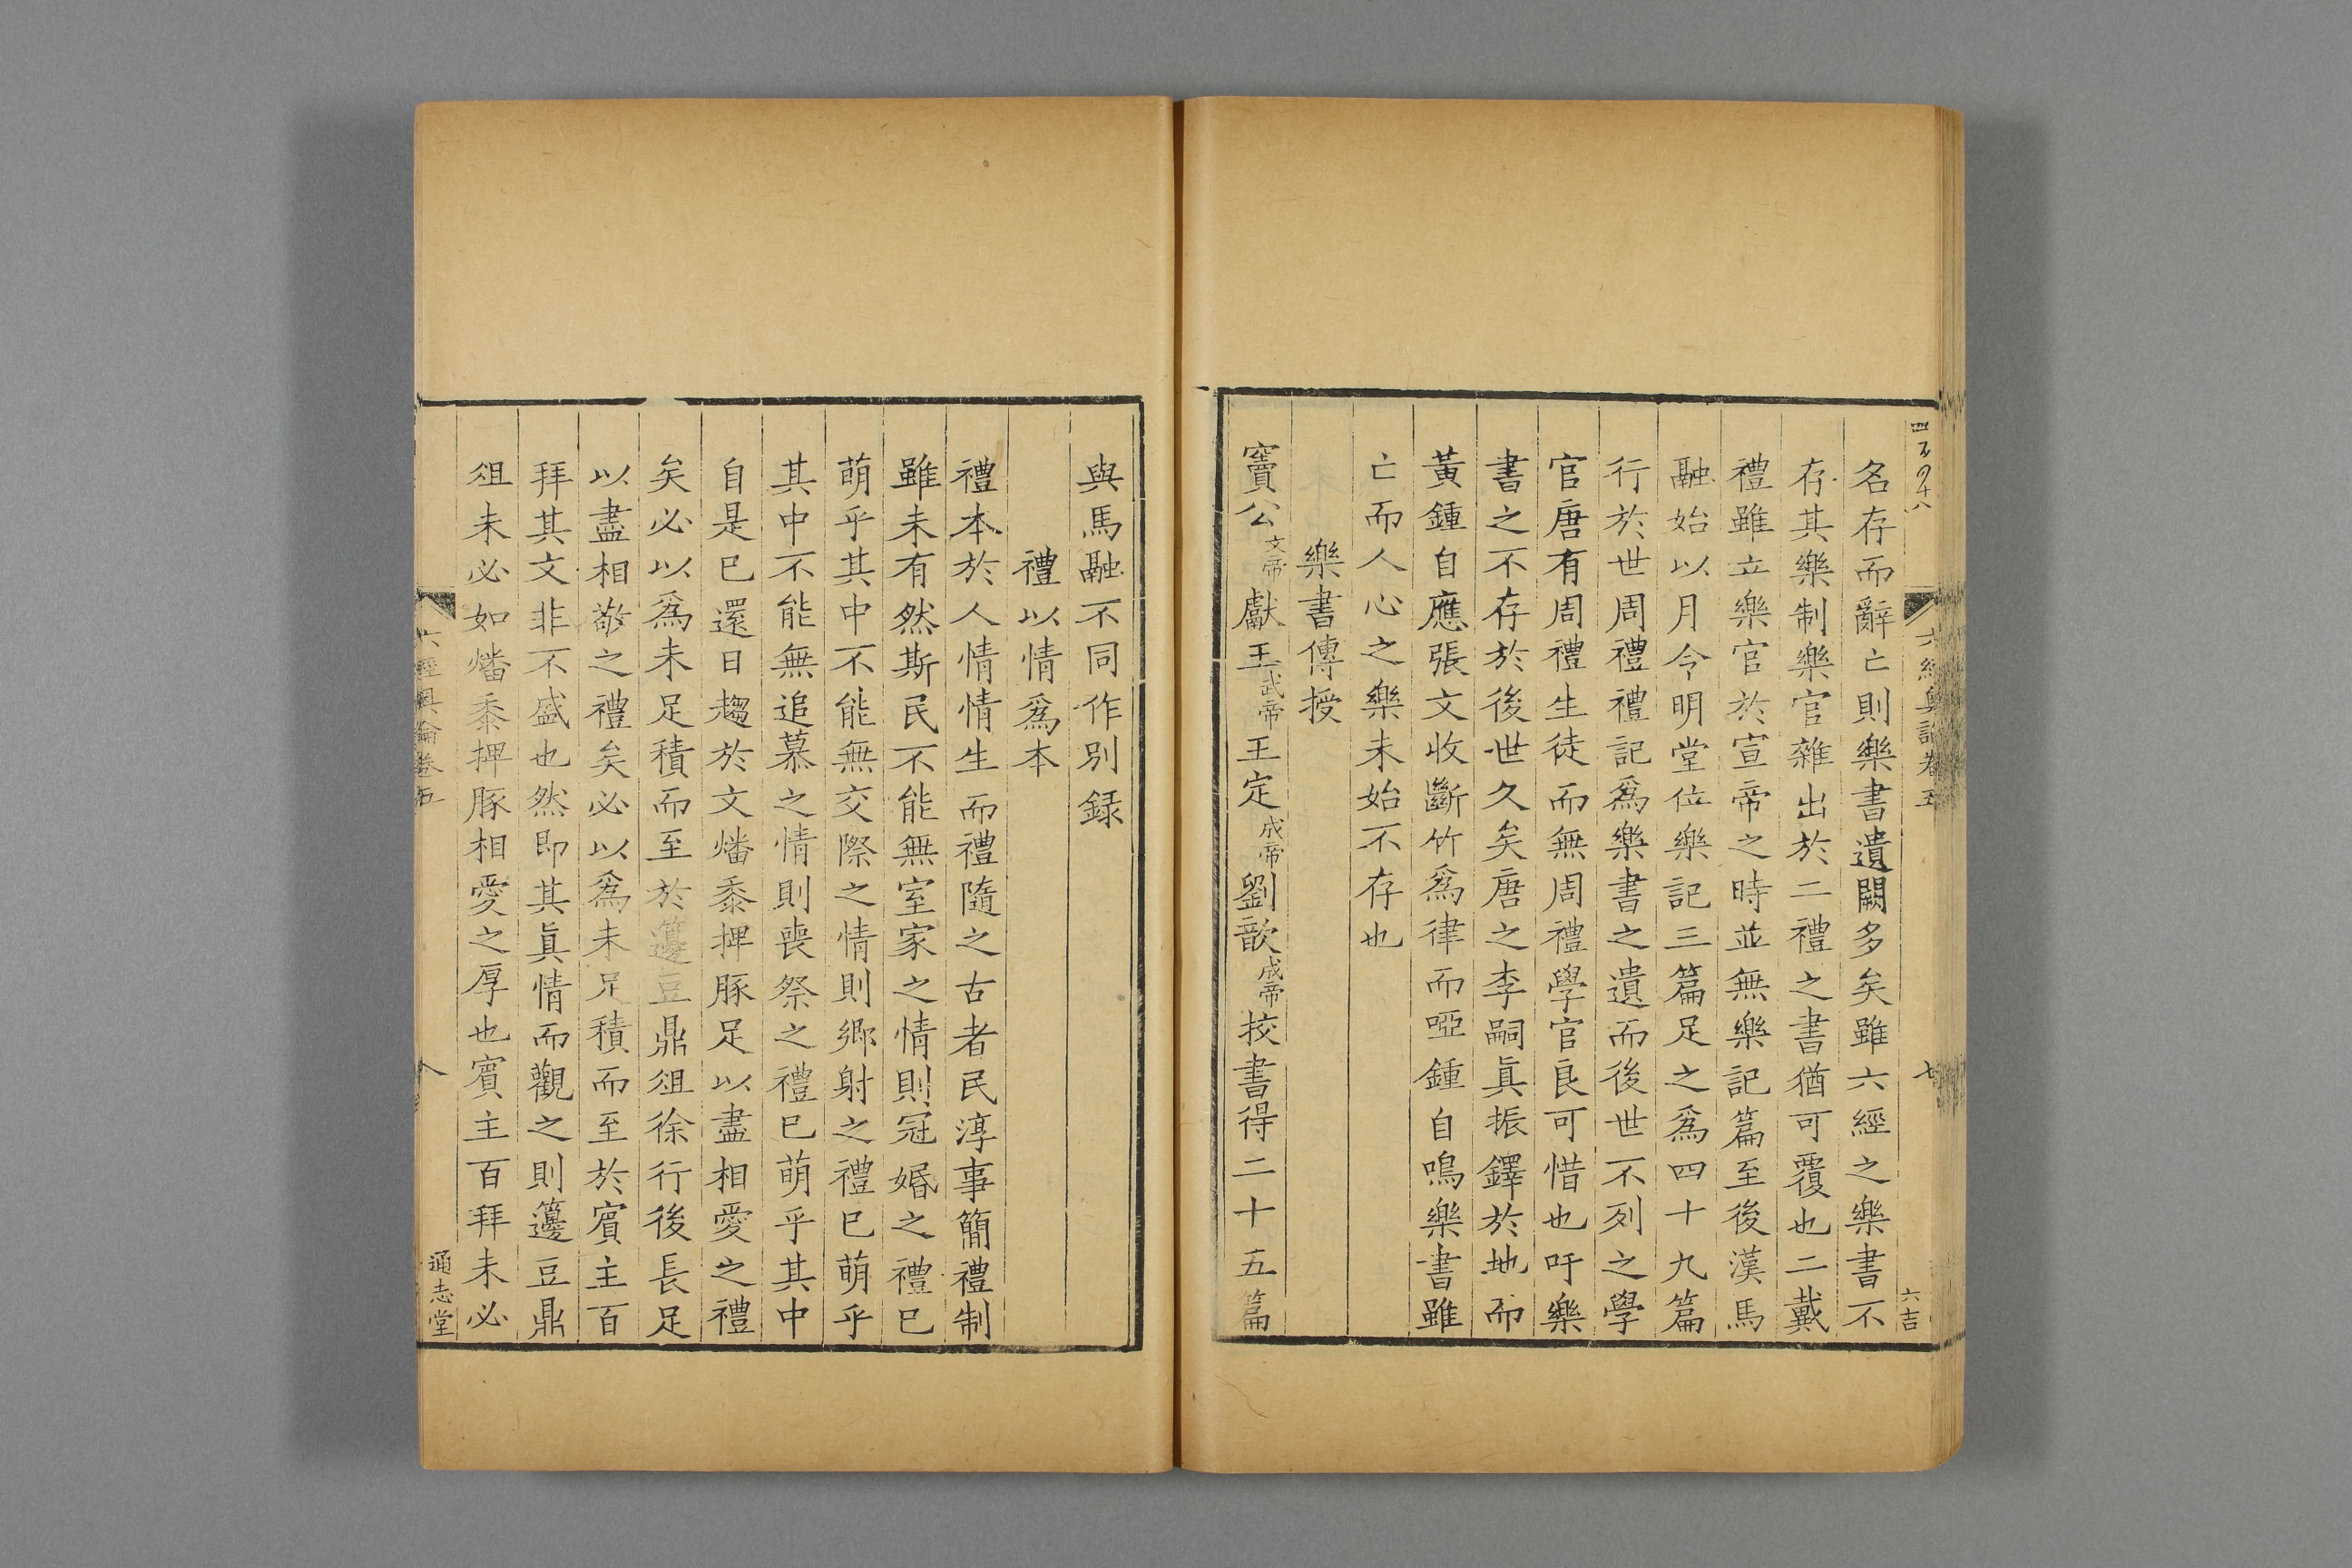 六經奥論卷五
七
六吉
名存而辭亡則樂書遺闕多矣雖六經之樂書不
存其樂制樂官雜出於二禮之書猶可覆也二戴
禮雖立樂官於宣帝之時並無樂記篇至後漢馬
融始以月令明堂位樂記三篇足之爲四十九篇
行於世周禮禮記爲樂書之遺而後世不列之學
官唐有周禮生徒而無周禮學官良可惜也吁樂
書之不存於後世久矣唐之李嗣眞振鐸於地而
黃鍾自應張文收斷竹爲律而啞鍾自鳴樂書雖
亡而人心之樂未始不存也
樂書傳授
竇公文帝獻王武帝王定成帝劉歆成帝挍書得二十五篇
與馬融不同作別録
禮以情爲本
禮本於人情情生而禮隨之古者民淳事簡禮制
雖未有然斯民不能無室家之情則冠婚之禮已
萌乎其中不能無交際之情則鄉射之禮已萌乎
其中不能無追慕之情則喪祭之禮已萌乎其中
自是已還日趨於文燔黍捭豚足以盡相愛之禮
矣必以爲未足積而至於籩豆鼎俎徐行後長足
以盡相敬之禮矣必以爲未足積而至於賓主百
拜其文非不盛也然即其眞情而觀之則籩豆鼎
俎未必如燔黍捭豚相愛之厚也賓主百拜未必
六經奥論卷五
八
通志堂